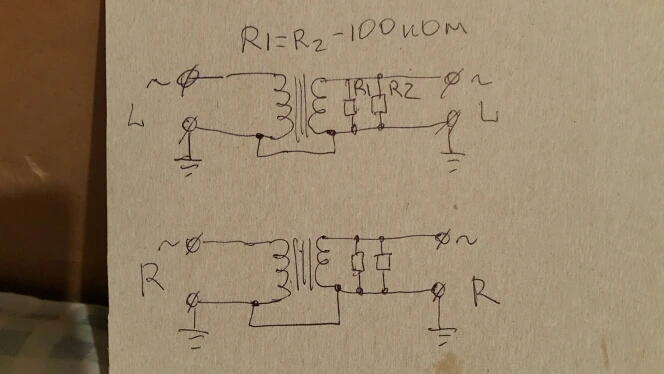 R1=R2-100кОм
~ ~
R1 R2
L L
~ ~
R R